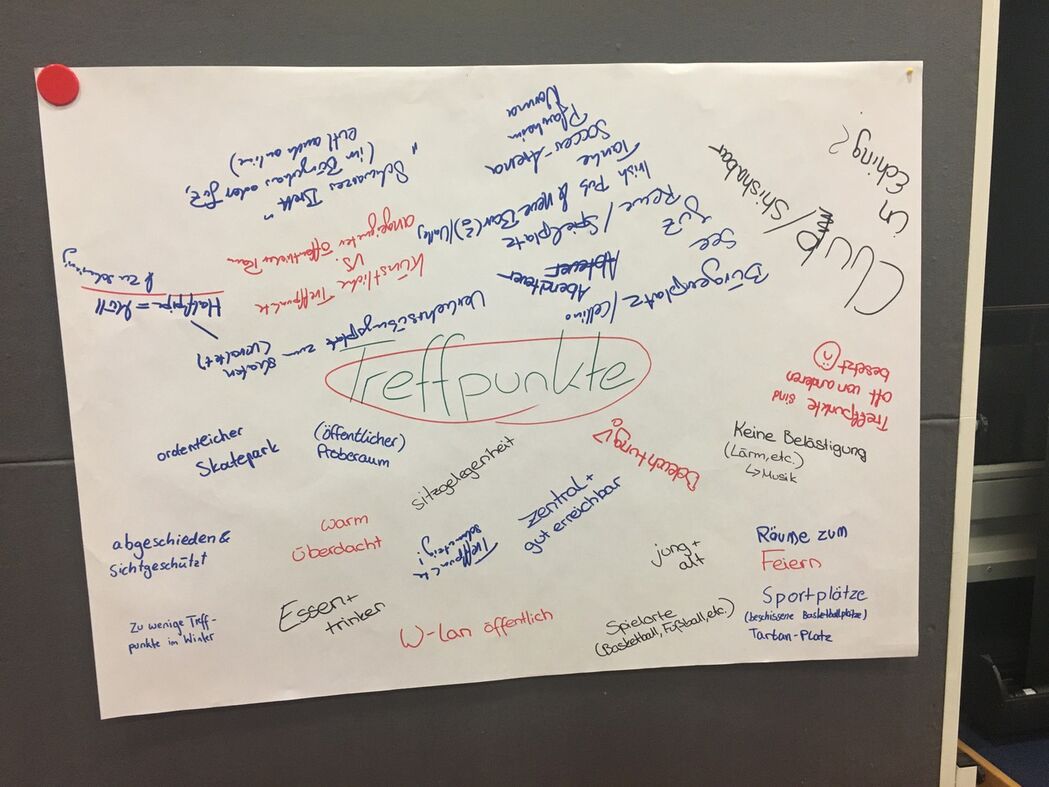 Club / Shishabar
in
Eching?
Bürgerplatz / Cellino
See
JUZ
Rewe / Spielplatz
Irish Pub & neue Bar
Tanke
Soccer-Arena
Norma
Abenteuer
"Schwarzes Brett"
(im Bürgerhaus oder JUZ,
evtl auch online)
Künstliche Treffpunkte
vs.
öffentlicher Raum
Verkehrsübungsplatz zum
skaten
(veraltet)
Halfpipe = Müll
Treffpunkte
Treffpunkte sind
oft von anderen
besetzt
ordentlicher
Skatepark
(öffentlicher)
Proberaum
sitzgelegenheit
Beleuchtung!
Keine Belästigung
(Lärm, etc.)
↳ Musik
abgeschieden &
sichtgeschützt
warm
überdacht
Treffpunkte
zentral +
gut erreichbar
jung +
alt
Räume zum
Feiern
Zu wenige Treff-
punkte im Winter
Essen +
trinken
W-Lan öffentlich
Spielorte
(Basketball, Fußball, etc.)
Sportplätze
(beschissene Basketballplätze)
Tartan-Platz